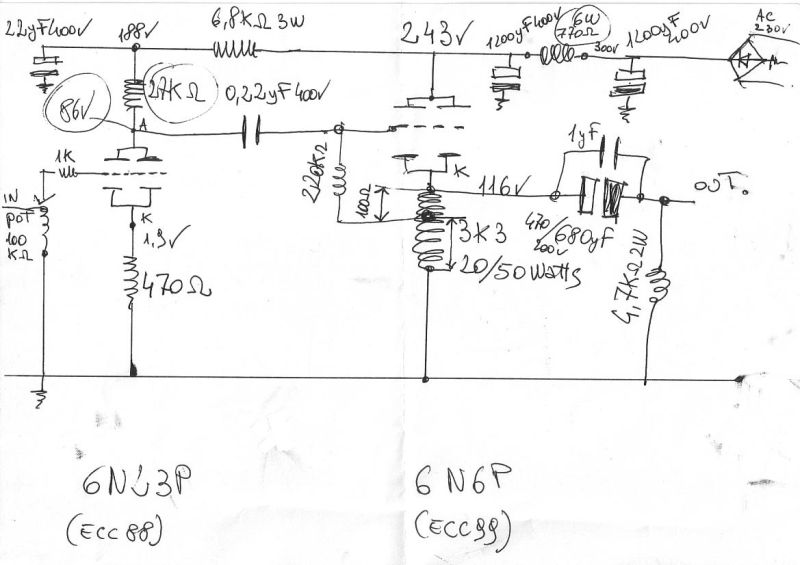 22µF400v
188v
6,8KΩ 3W
243v
1200µF400v
6W
770Ω
300v
1200µF
400v
AC
230v
86v
27KΩ
A
0,22µF 400v
1K
IN
POT
100
KΩ
K
1,3v
470Ω
220KΩ
100Ω
K
116v
3K3
20/50Watts
1µF
470/680µF
200v
OUT.
4,7KΩ 2W
6N23P
(ECC88)
6N6P
(ECC99)